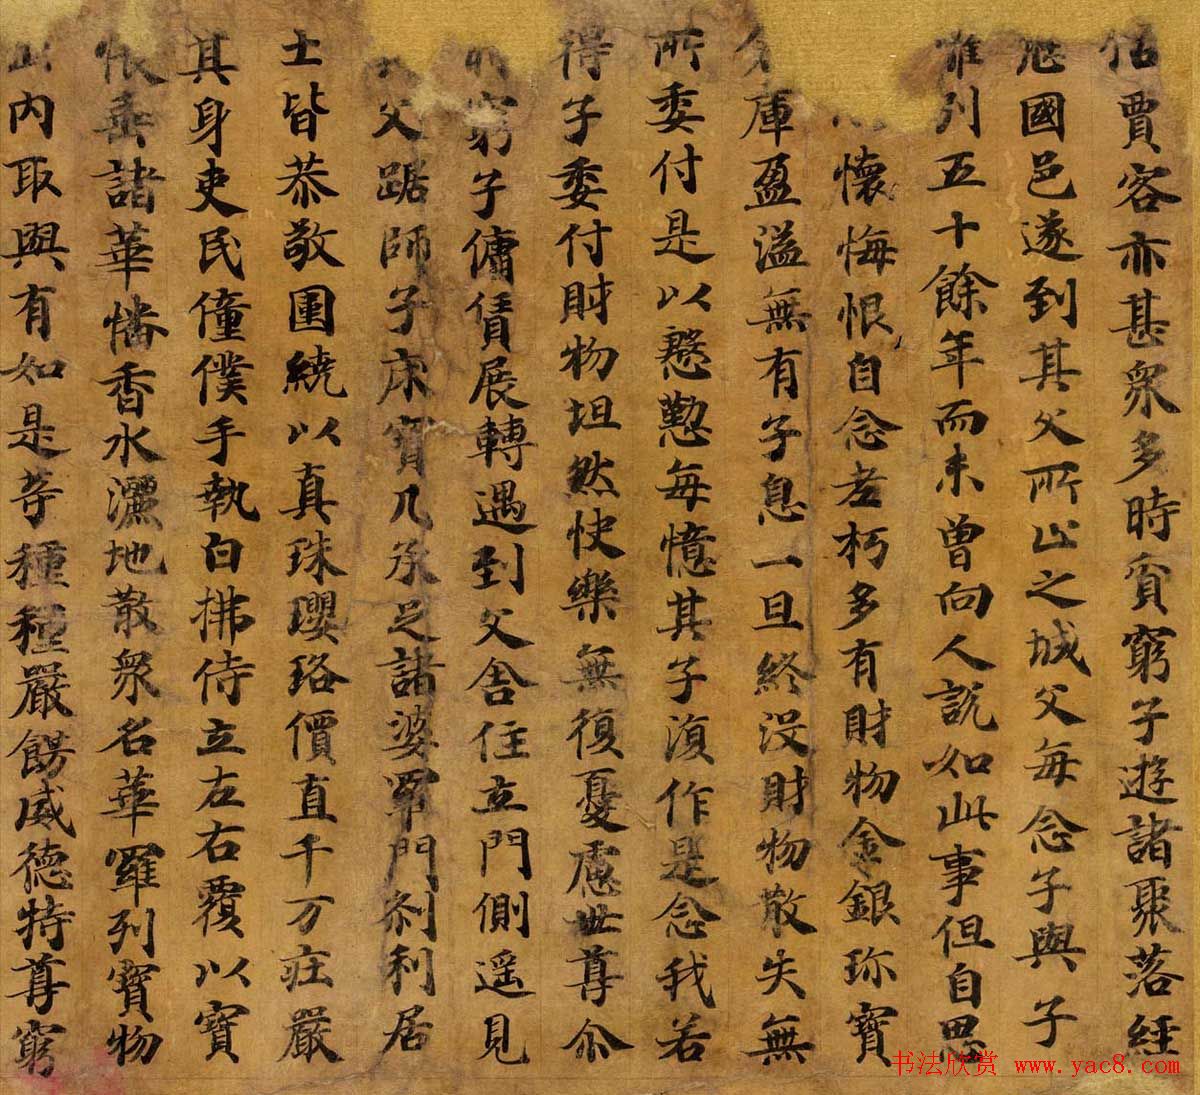 估賈客亦甚衆多時貧窮子遊諸聚落經
歷國邑遂到其父所止之城父每念子與子
離別五十餘年而未曾向人說如此事但自思
懷悔恨自念老朽多有財物金銀珎寶
庫盈溢無有子息一旦終没財物散失無
所委付是以慇懃每憶其子復作是念我若
得子委付財物坦然快樂無復憂慮世尊尒
窮子傭賃展轉遇到父舍住立門側遥見
父踞師子床寶几承足諸婆羅門刹利居
士皆恭敬圍繞以真珠瓔珞價直千万莊嚴
其身吏民僮僕手執白拂侍立左右覆以寶
帳垂諸華幡香水灑地散衆名華羅列寶物
出内取與有如是等種種嚴餝威德特尊窮
书法欣赏 www.yac8.com